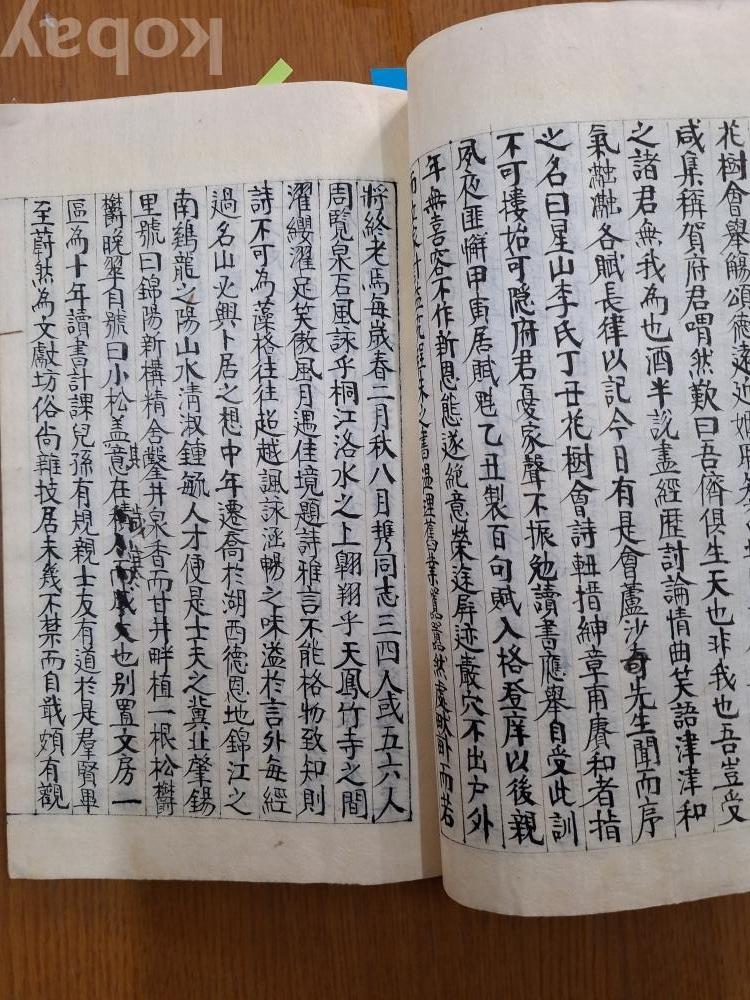 kobay
花樹會舉觴頌德
咸集稱賀府君喟然歎曰吾儕俱生天也非我也吾豈受
之諸君無我為也酒半說盡經歷討論情曲笑語津津和
氣融融各賦長律以記今日有是會蘆沙奇先生聞而序
之名曰星山李氏丁丑花樹會詩軸搢紳章甫賡和者指
不可摟始可隱府君憂家聲不振勉讀書應舉自受此訓
夙夜匪懈甲寅居賦魁乙丑製百句賦入格登庠以後親
年無喜容不作新恩態遂絕意榮途屛迹巖穴不出戶外
舊業囂囂然處畎畝而若
將終老焉每歲春二月秋八月携同志三四人或五六人
周覽泉石風詠乎桐江洛水之上翺翔乎天鳳竹寺之間
濯纓濯足笑傲風月遇佳境題詩雅言不能格物致知則
詩不可為藻格往往超越諷詠涵暢之味溢於言外每經
過名山必興卜居之想中年遷喬於湖西德恩地錦江之
南鷄龍之陽山水清淑鍾毓人才便是士夫之冀北肇錫
里號曰錦陽新構精舍鑿井泉香而甘井畔植一根松鬱
鬱晚翠自號曰小松盖意在也別置文房一
區為十年讀書計課兒孫有規親士友有道於是羣賢畢
至蔚然為文獻坊俗尙雜技居未幾不禁而自戢頗有觀